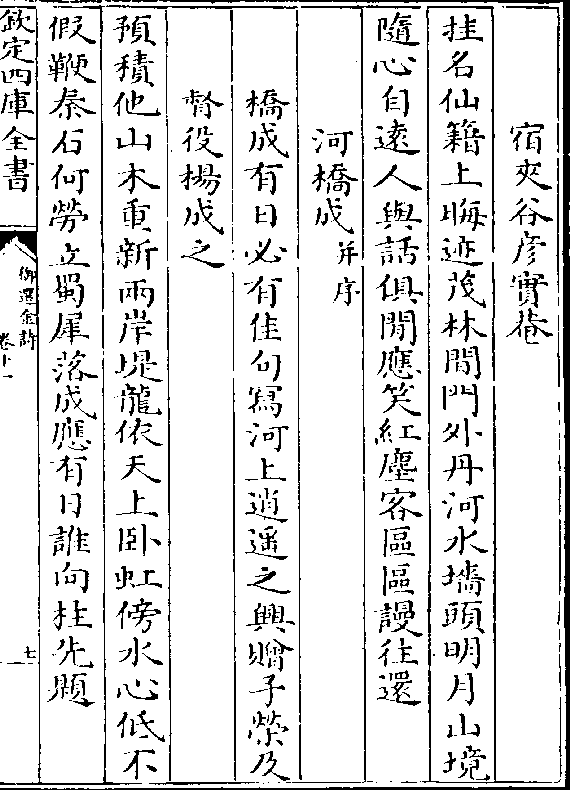 宿夾谷彥實菴
挂名仙籍上晦迹茂林間門外丹河水墻頭明月山境
隨心自遠人與話俱閒應笑紅塵客區區謾往還
河橋成并序
橋成有日必有佳句寫河上逍遥之興贈子榮及
督役楊成之
預積他山木重新兩岸堤龍依天上卧虹傍水心低不
假鞭秦石何勞立蜀犀落成應有日誰向柱先題
欽定四庫全書
御選金詩
卷十一
七